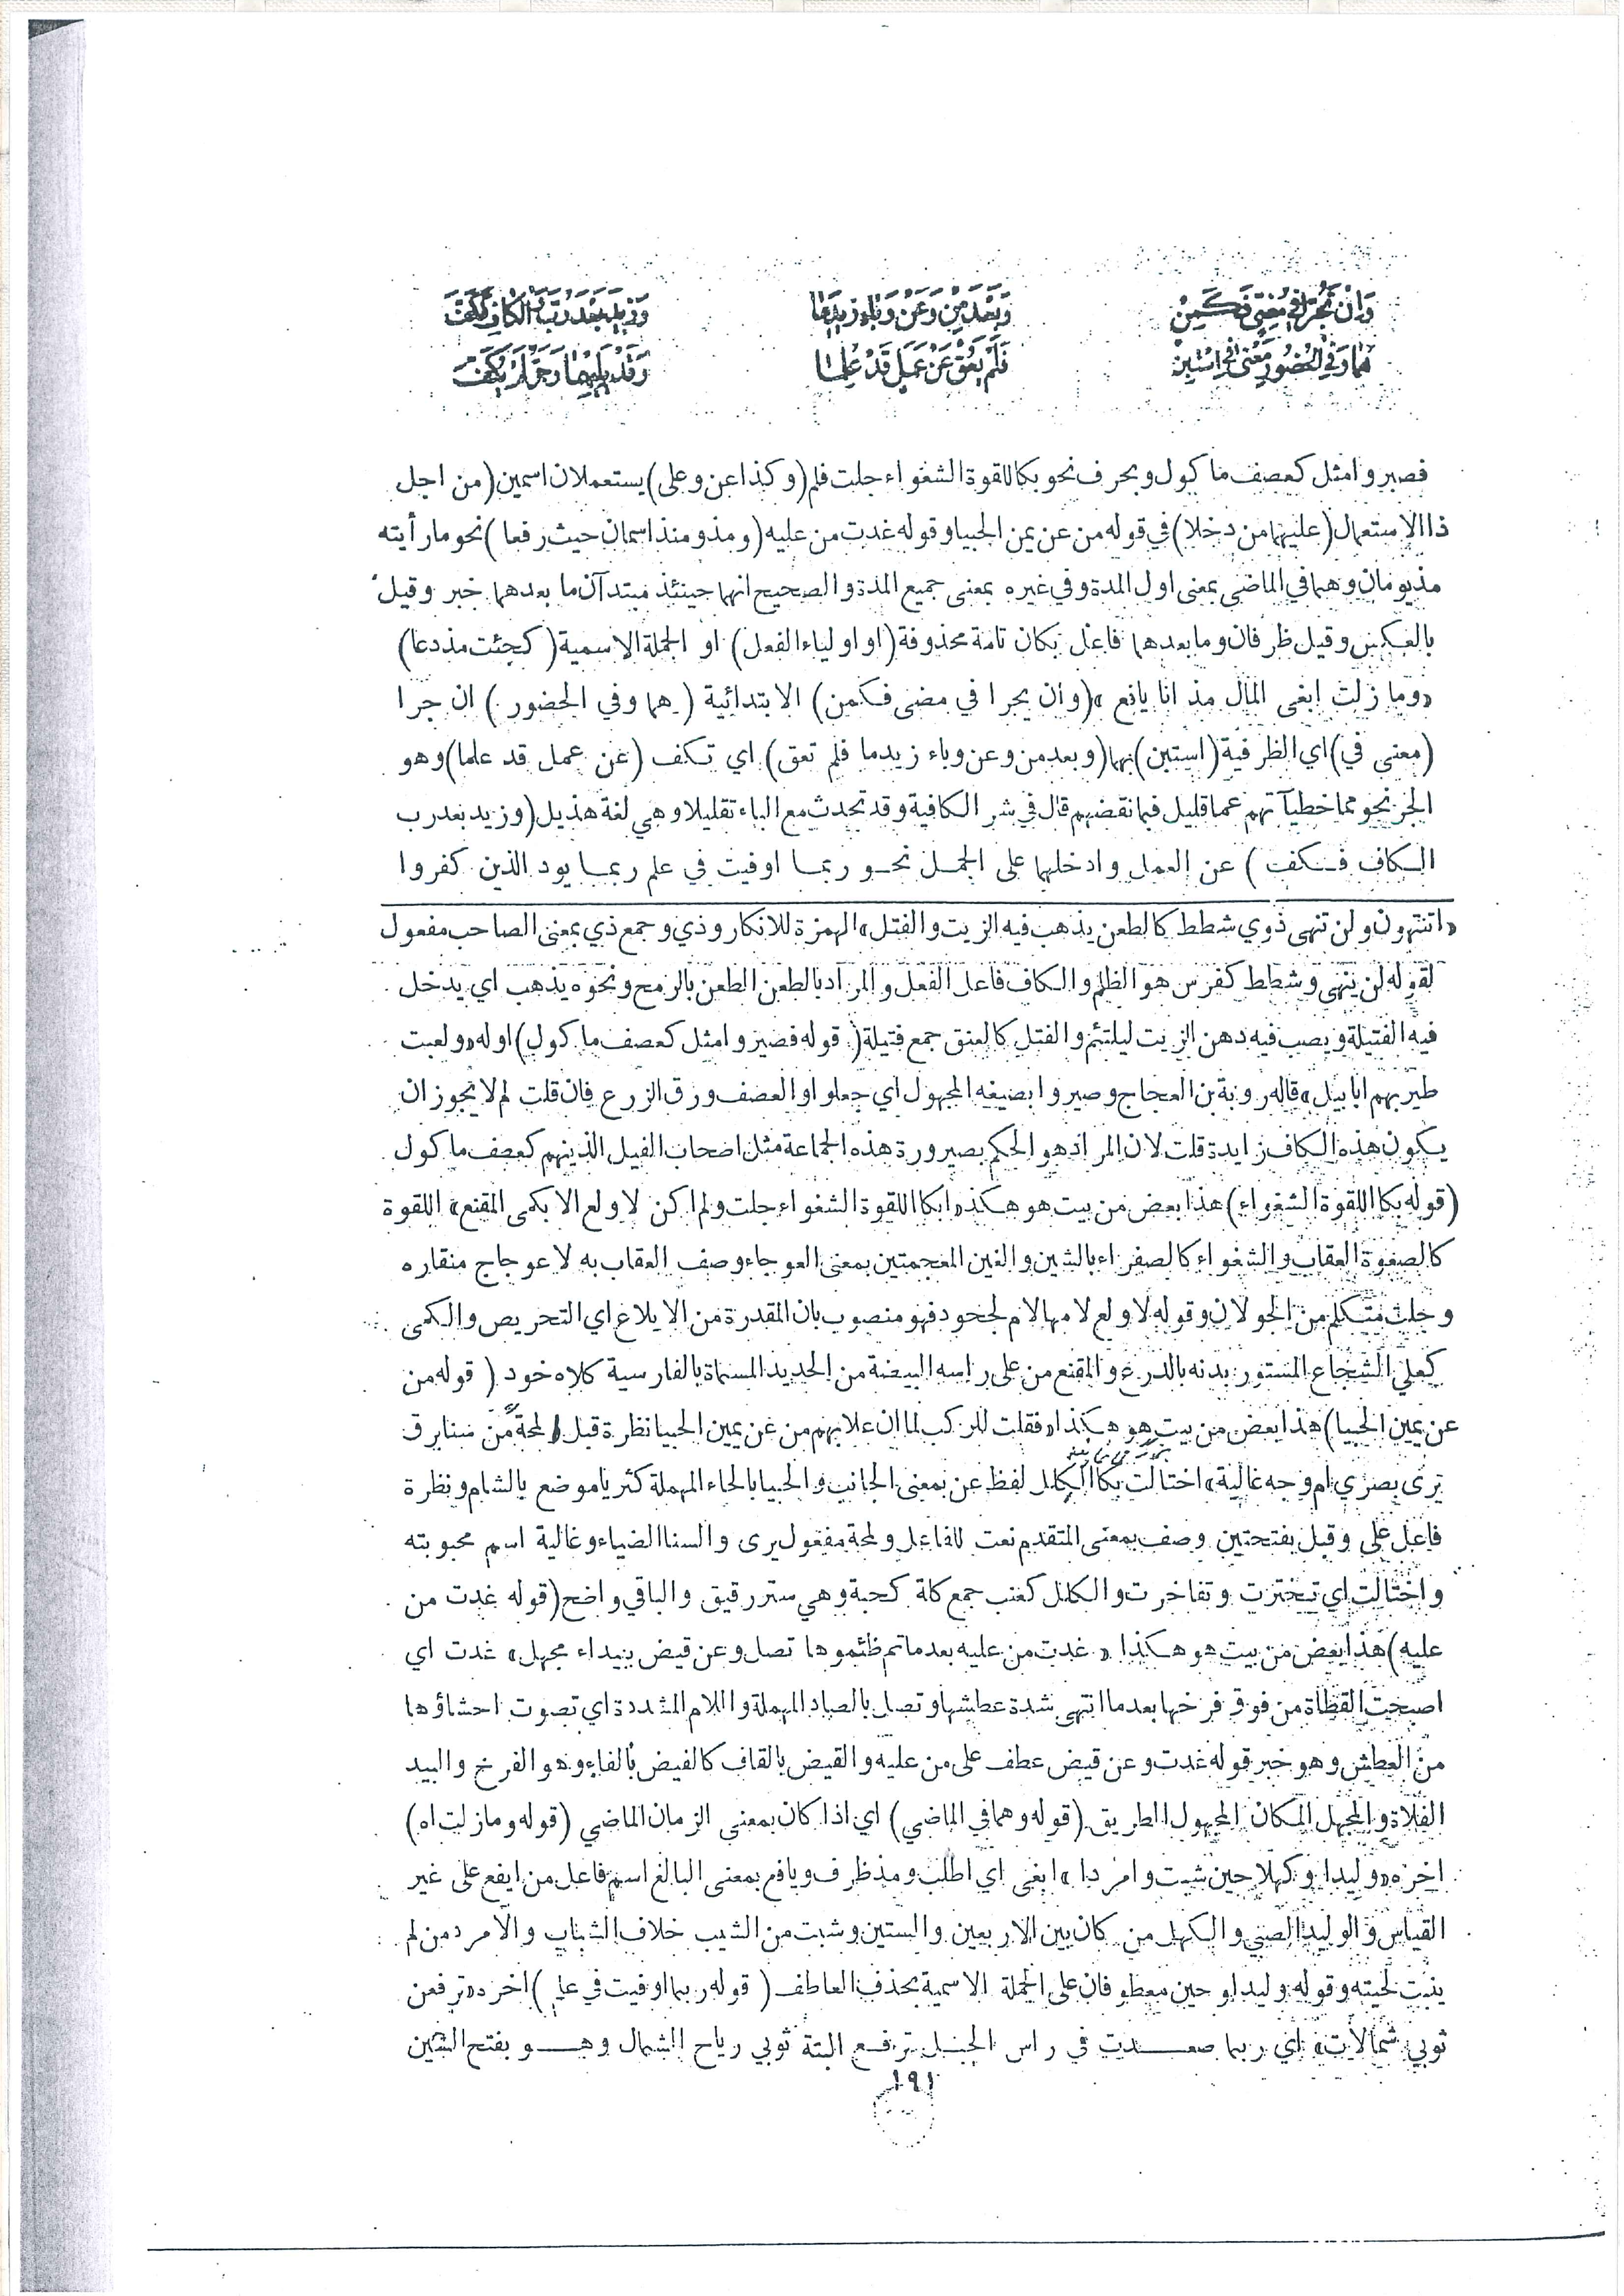 وَاِنْ يَجُرّا فِي مُضِيٍّ فَكَمِنْ وَبَعْدَ مِنْ وَعَنْ وَبَاءٍ زِيدَ مَا وَزِيدَ بَعْدَ رُبَّ وَالْكَافِ فَكَفَّ
هُمَا وَفِي الْحُضُورِ مَعْنَى فِي اسْتَبِنْ فَلَمْ يَعُقْ عَنْ عَمَلٍ قَدْ عُلِمَا وَقَدْ يَلِيهِمَا وَجَرٌّ لَمْ يُكَفَّ
فصيروا مثل كعصف ماكول وبحرف نحو بكاللقوة الشغواء جلت فلم (وكذا عن وعلى) يستعملان اسمين (من اجل
ذا الاستعمال (عليهما من دخلا) في قوله من عن يمن الحبيا وقوله غدت من عليه (ومذ ومنذ اسمان حيث رفعا) نحو ما رأيته
مذ يومان وهما في الماضي بمعنى اول المدة وفي غيره بمعنى جميع المدة والصحيح انهما حينئذ مبتدآن ما بعدهما خبر وقيل
بالعكس وقيل ظرفان وما بعدهما فاعل بكان تامة محذوفة (او اوليا الفعل) او الجملة الاسمية (كجئت مذ دعا)
«وما زلت ابغي المال مذ انا يافع» (وان يجرا في مضى فكمن) الابتدائية (هما وفي الحضور) ان جرا
(معنى في) اي الظرفية (استبن) بهما (وبعد من وعن وباء زيد ما فلم تعق) اي تكف (عن عمل قد علما) وهو
الجر نحو مما خطيآتهم عما قليل فبما نقضهم قال في شر الكافية وقد تحدث مع الباء تقليلا وهي لغة هذيل (وزيد بعد رب
الكاف فكف) عن العمل وادخلهما على الجمل نحو ربما اوفيت في علم ربما يود الذين كفروا
«اتنتهون ولن تنهى ذوي شطط كالطعن يذهب فيه الزيت والفتل» الهمزة للانكار وذي وجمع ذي بمعنى الصاحب مفعول
لقوله لن ينهى وشطط كفرس هو الظلم والكاف فاعل الفعل والمراد بالطعن الطعن بالرمح ونحوه يذهب اي يدخل
فيه الفتيلة ويصب فيه دهن الزيت ليلتئم والفتل كالعنق جمع فتيلة (قوله فصيروا مثل كعصف ماكول) اوله «ولعبت
طير بهم ابابيل» قاله روبة بن العجاج وصيروا بصيغه المجهول اي جعلوا والعصف ورق الزرع فان قلت لم لا يجوز ان
يكون هذه الكاف زايدة قلت لان المراد هو الحكم بصيرورة هذه الجماعة مثل اصحاب الفيل الذينهم كعصف ماكول
(قوله بكا اللقوة الشغواء) هذا بعض من بيت هو هكذ «ابكا اللقوة الشغواء جلت ولم اكن لاولع الا بكمى المقنع» اللقوة
كالصفوة العقاب والشغواء كالصفراء بالشين والغين المعجمتين بمعنى العوجاء وصف العقاب به لاعوجاج منقاره
وجلت متكلم من الجولان وقوله لاولع لامها لام لجحود فهو منصوب بان المقدرة من الايلاع اي التحريص والكمى
كعلي الشجاع المستور بدنه بالدرع والمقنع من على راسه البيضة من الحديد المسماة بالفارسية كلاه خود (قوله من
عن يمين الحبيا) هذا بعض من بيت هو هكذا «فقلت للركب لما ان علا بهم من عن يمين الحبيا نظرة قبل المحة من سنا برق
يرى بصري ام وجه غالية» اختالت بكا الكلل لفظ عن بمعنى الجانب والحبيا بالحاء المهملة كثريا موضع بالشام ونظرة
فاعل على وقبل بفتحتين وصف بمعنى المتقدم نعت للفاعل ولمحة مفعول يرى والسنا الضياء وغالية اسم محبوبته
واختالت اي تبخترت وتفاخرت والكلل كعنب جمع كلة كحبة وهي ستر رقيق والباقي واضح (قوله غدت من
عليه) هذا بعض من بيت هو هكذا «غدت من عليه بعد ما تم ظئموها تصل وعن قيض ببيداء مجهل» غدت اي
اصبحت القطاة من فوق فرخها بعد ما انتهى شدة عطشها وتصل بالصاد المهملة واللام المشددة اي تصوت احشاؤها
من العطش وهو خبر قوله غدت وعن قيض عطف على من عليه والقيض بالقاف كالفيض بالفاء وهو الفرخ والبيد
الفلاة والمجهل المكان المجهول الطريق (قوله وهما في الماضي) اي اذا كان بمعنى الزمان الماضي (قوله وما زلت اه)
اخره «وليدا وكهلا حين شبت وامردا» ابغى اي اطلب ومذ ظرف ويافع بمعنى البالغ اسم فاعل من ايفع على غير
القياس والوليد الصبي والكهل من كان بين الاربعين والستين وشبت من الشيب خلاف الشباب والامرد من لم
ينبت لحيته وقوله وليدا وحين معطوفان على الجملة الاسمية بحذف العاطف (قوله ربما اوفيت في علم) اخره «ترفعن
ثوبي شمالات» اي ربما صعدت في راس الجبل ترفع البتة ثوبي رياح الشمال وهو بفتح الشين
١٩١